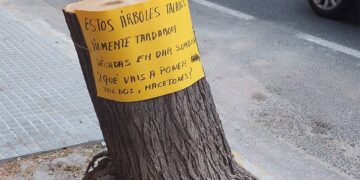 ESTOS ÁRBOLES TALADOS
VILMENTE TARDARON
DÉCADAS EN DAR SOMBRA
¿QUÉ VAIS A PONER
TOLDOS, MACETONES?